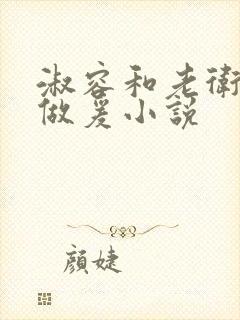 淑容和老衛
做爰小説
顔婕